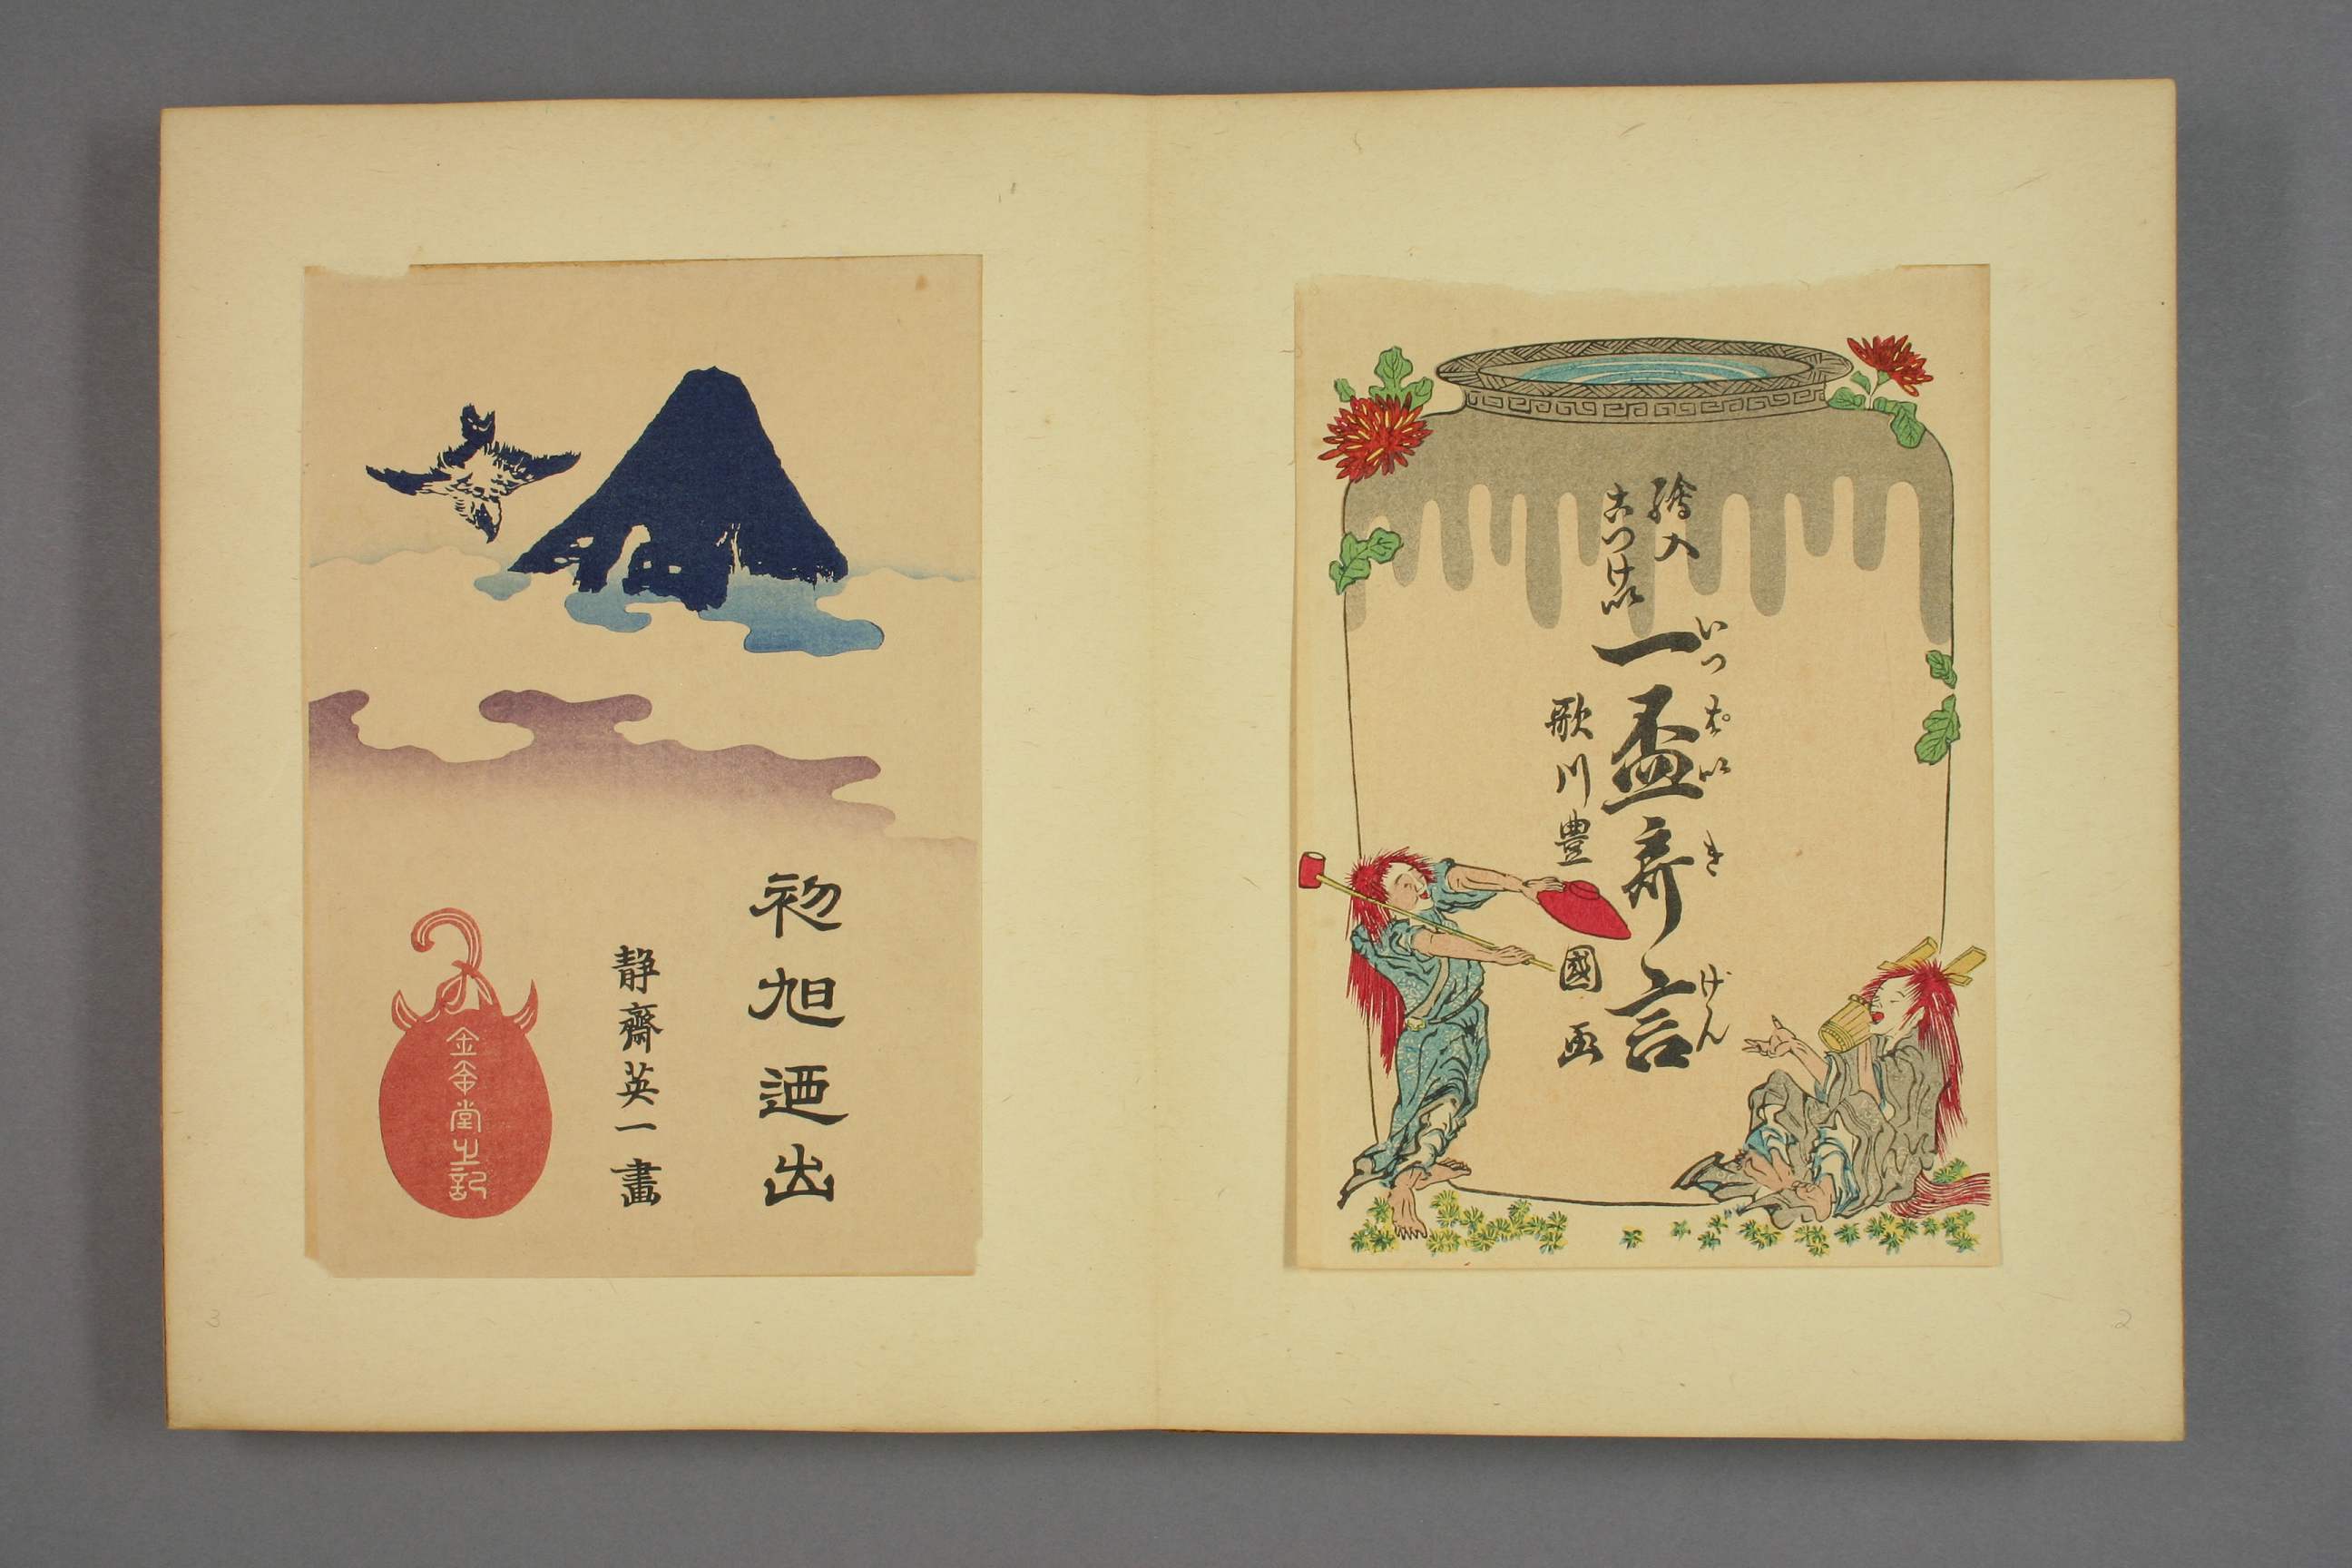 繪入
こつけい
一盃奇言
いつぱいきげん
歌川豊國画
2
初旭廼出
静齋英一畫
金幸堂之記
3